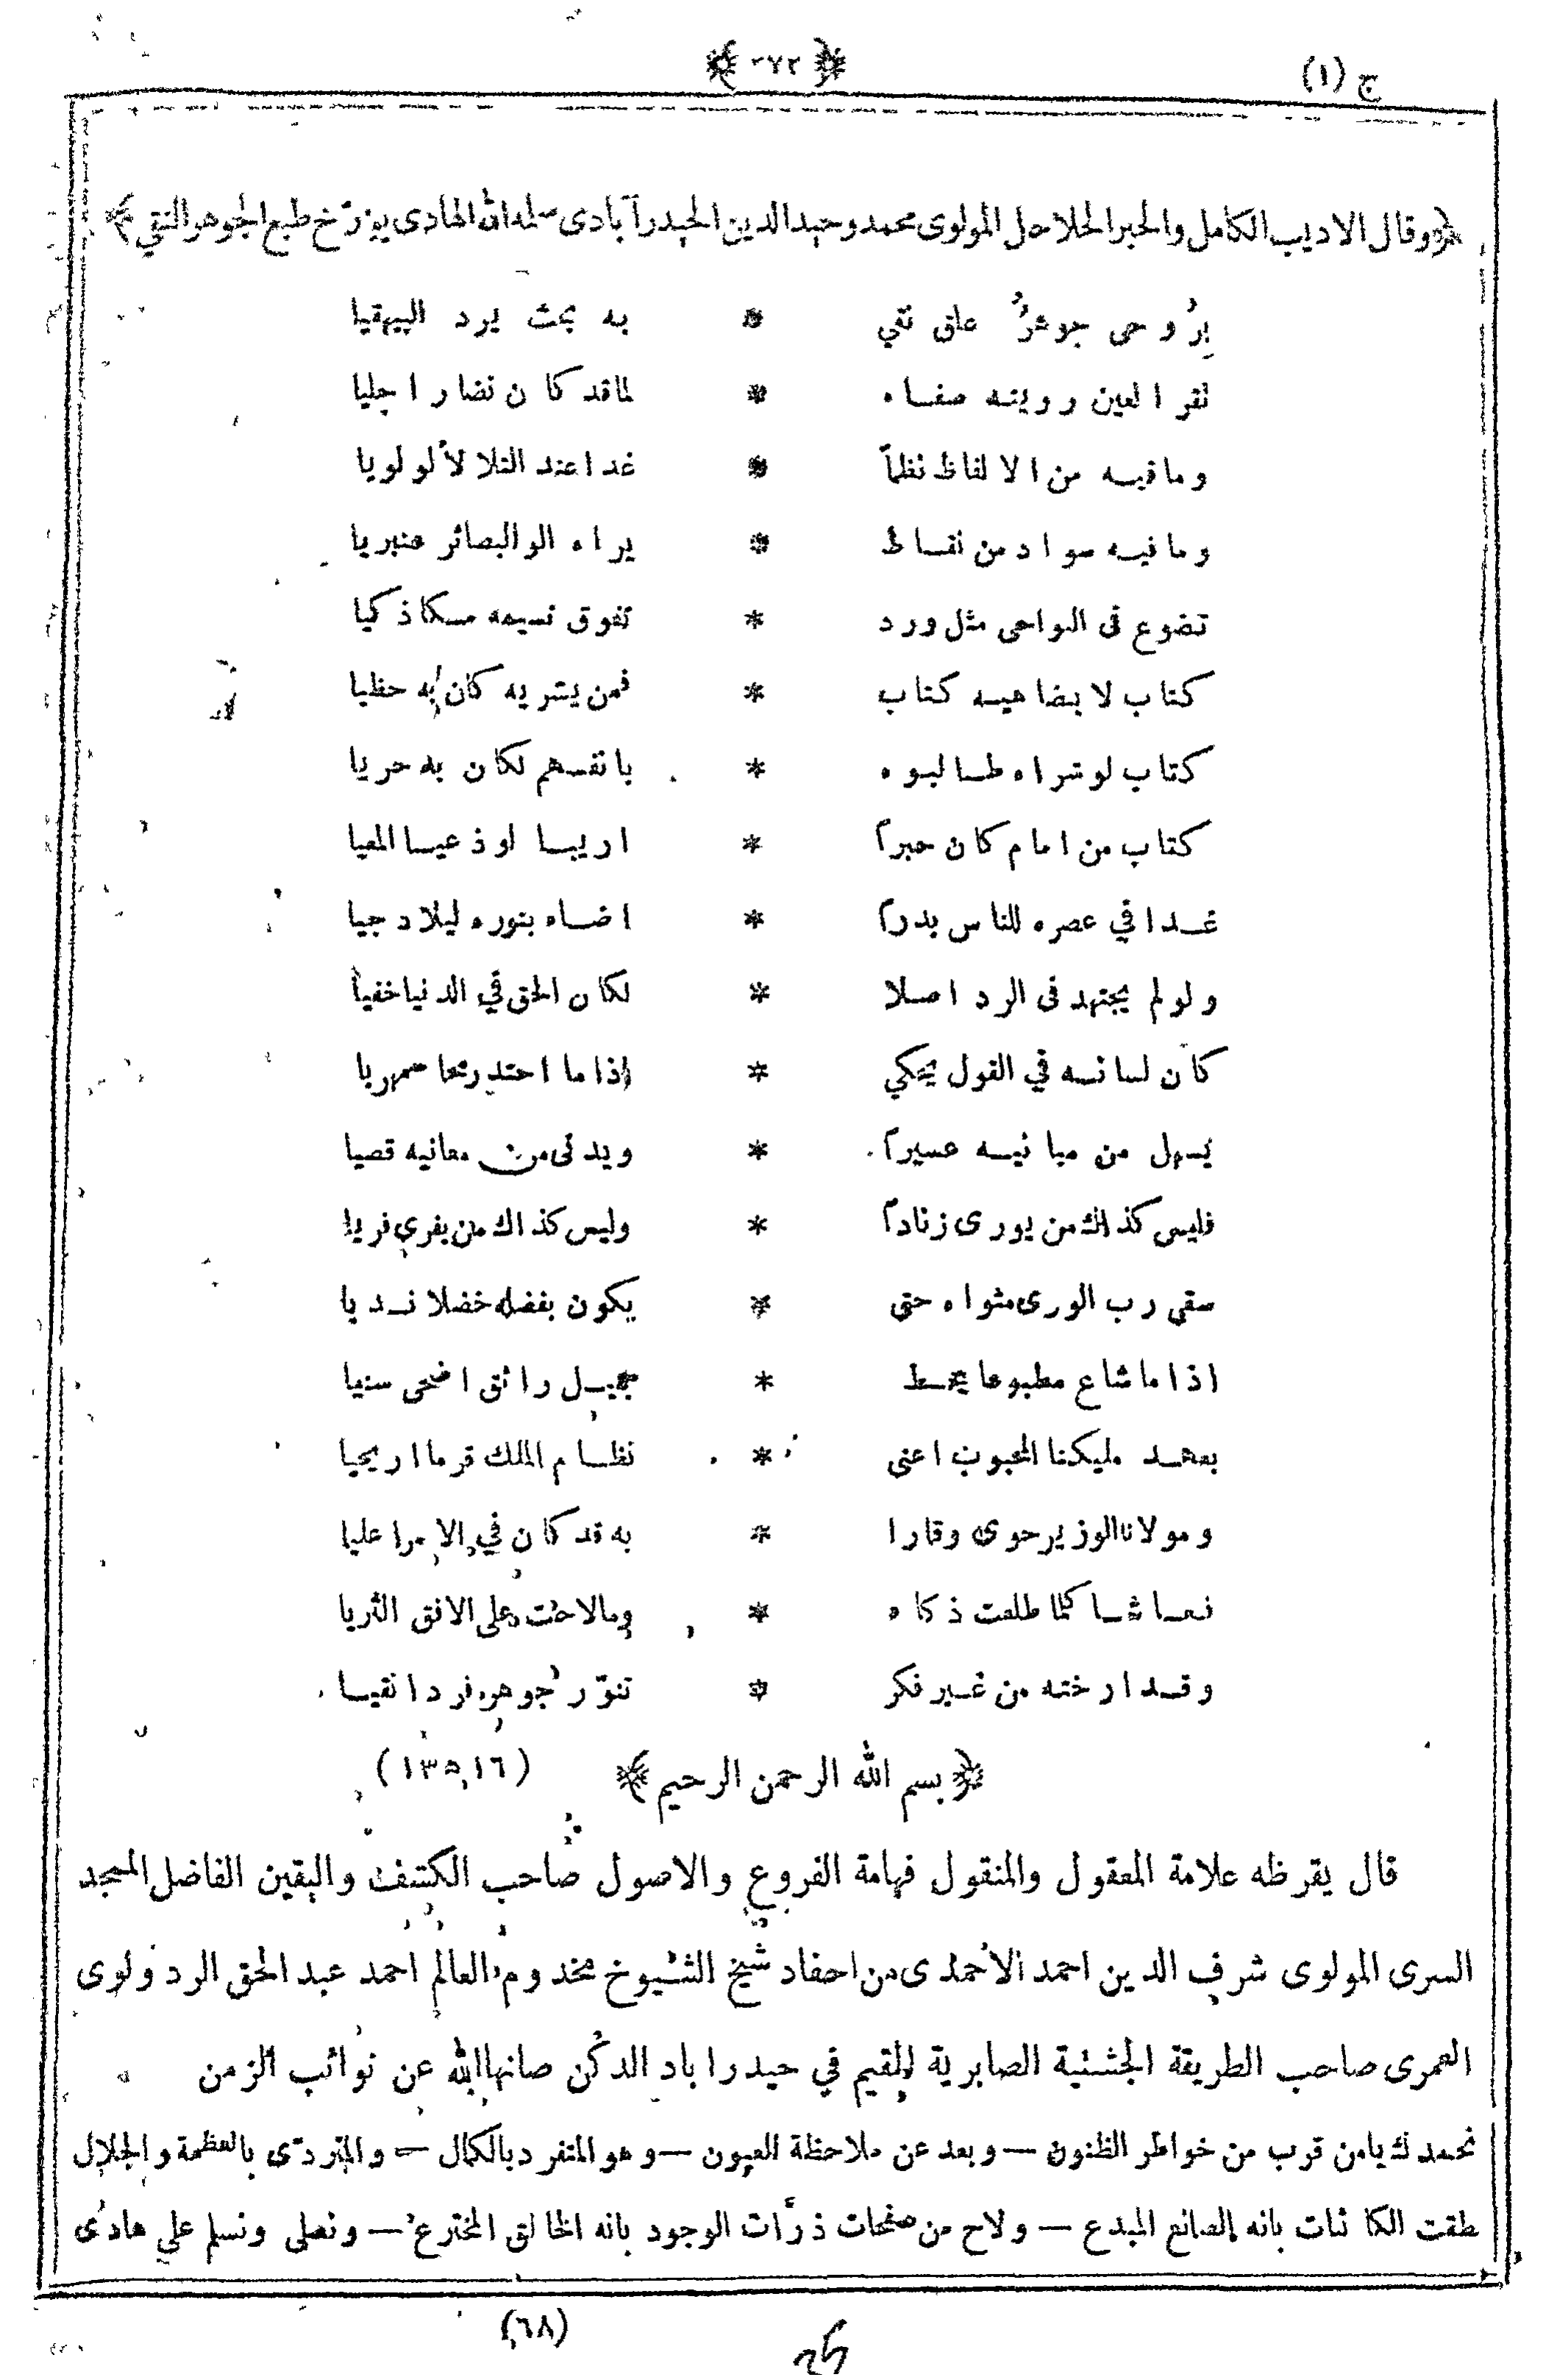 ج (١)
﴿ ٣٧٢ ﴾
﴿ وقال الاديب الكامل والحبر الحلاحل المولوى محمد وحيد الدين الحيدرآبادى سلمه الله الهادى يورّخ طبع الجوهر النقي ﴾
بروحى جوهرٌ علق نقي * به بحث يرد البيهقيا
تقر العين رويته صفاء * لما قد كان نضارا جليا
وما فيه من الالفاظ نظماً * غدا عند التلالأ لولويا
وما فيه سواد من نقاط * يراه الوالبصائر عنبريا
تضوع فى النواحى مثل ورد * تفوق نسيمه مسكا ذكيا
كتاب لا يضاهيه كتاب * فمن يشريه كان به حظيا
كتاب لو شراه طالبوه * بانفسهم لكان به حريا
كتاب من امام كان حبراً * اريبا لوذعيا المعيا
غدا في عصره للناس بدراً * اضاء بنوره ليلا دجيا
ولو لم يجتهد فى الرد اصلا * لكان الحق في الدنيا خفياً
كان لسانه في القول يحكي * اذا ما احتد رمحا سمهريا
يسهل من مبانيه عسيراً * ويدنى من معانيه قصيا
فليس كذاك من يورى زناداً * وليس كذاك من يفري فريا
سقى رب الورى مثواه حتى * يكون بفضله خضلا نديا
اذا ما شاع مطبوعا بخط * جميل رائق اضحى سنيا
بعهد مليكنا المحبوب اعنى * نظام الملك قرما اريحيا
ومولانا الوزير حوى وقارا * به قد كان في الامرا عليا
فعاشا كلما طلعت ذكاء * وما لاحت على الافق الثريا
وقد ارخته من غير فكر * تنوّر جوهر فردا نقيا
﴿ بسم الله الرحمن الرحيم ﴾ (١٣١٦)
قال يقرظه علامة المعقول والمنقول فهامة الفروع والاصول صاحب الكشف واليقين الفاضل الممجد
السرى المولوى شرف الدين احمد الاحمدى من احفاد شيخ الشيوخ مخدوم العالم احمد عبد الحق الردولوى
العمرى صاحب الطريقة الچشتية الصابرية المقيم في حيدراباد الدكن صانها الله عن نوائب الزمن
نحمدك يا من قرب من خواطر الظنون — وبعد عن ملاحظة العيون — وهو المتفرد بالكمال — والمتردّى بالعظمة والجلال
نطقت الكائنات بانه الصانع المبدع — ولاح من صفحات ذرّات الوجود بانه الخالق المخترع — ونصلى ونسلم على هادى
(٦٨)